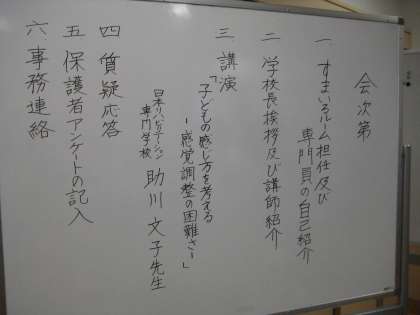 会次第
一 すまいるルーム担任及び
専門員の自己紹介
二 学校長挨拶及び講師紹介
三 講演
「子どもの感じ方を考える
－感覚調整の困難さ－」
日本リハビリテーション
専門学校 助川文子先生
四 質疑応答
五 保護者アンケートの記入
六 事務連絡